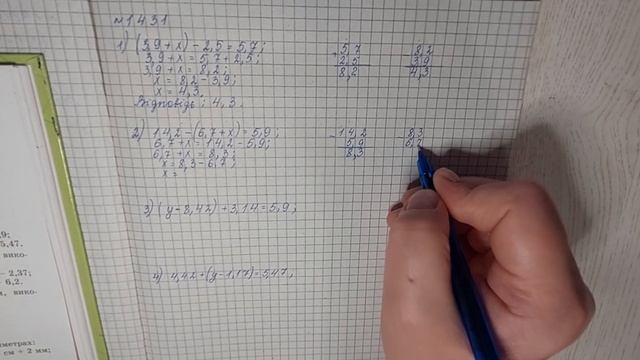 №1431
1) (3,9+x)-2,5=5,7;
3,9+x=5,7+2,5;
3,9+x=8,2;
x=8,2-3,9;
x=4,3.
Відповідь: 4,3.
+5,7
2,5
8,2
-8,2
3,9
4,3
2) 14,2-(6,7+x)=5,9;
6,7+x=14,2-5,9;
6,7+x=8,3;
x=8,3-6,7;
x=
-14,2
5,9
8,3
-8,3
3) (y-8,42)+3,14=5,9;
4) 4,42+(y-1,17)=5,47;
9;
5.47.
вико-
- 2,37;
- 6,2.
м, вико-
иметрах:
см + 2 мм;